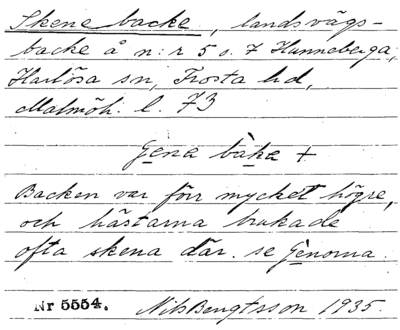 Skene backe, landsvägs-
backe å n:r 5 o. 7 Hanneberga,
Harlösa sn, Frosta hd,
Malmöh. l. 73
Gena bàka +
Backen var förr mycket högre,
och hästarna brukade
ofta skena där. se Gènorna.
Nr 5554. Nils Bengtsson 1935.